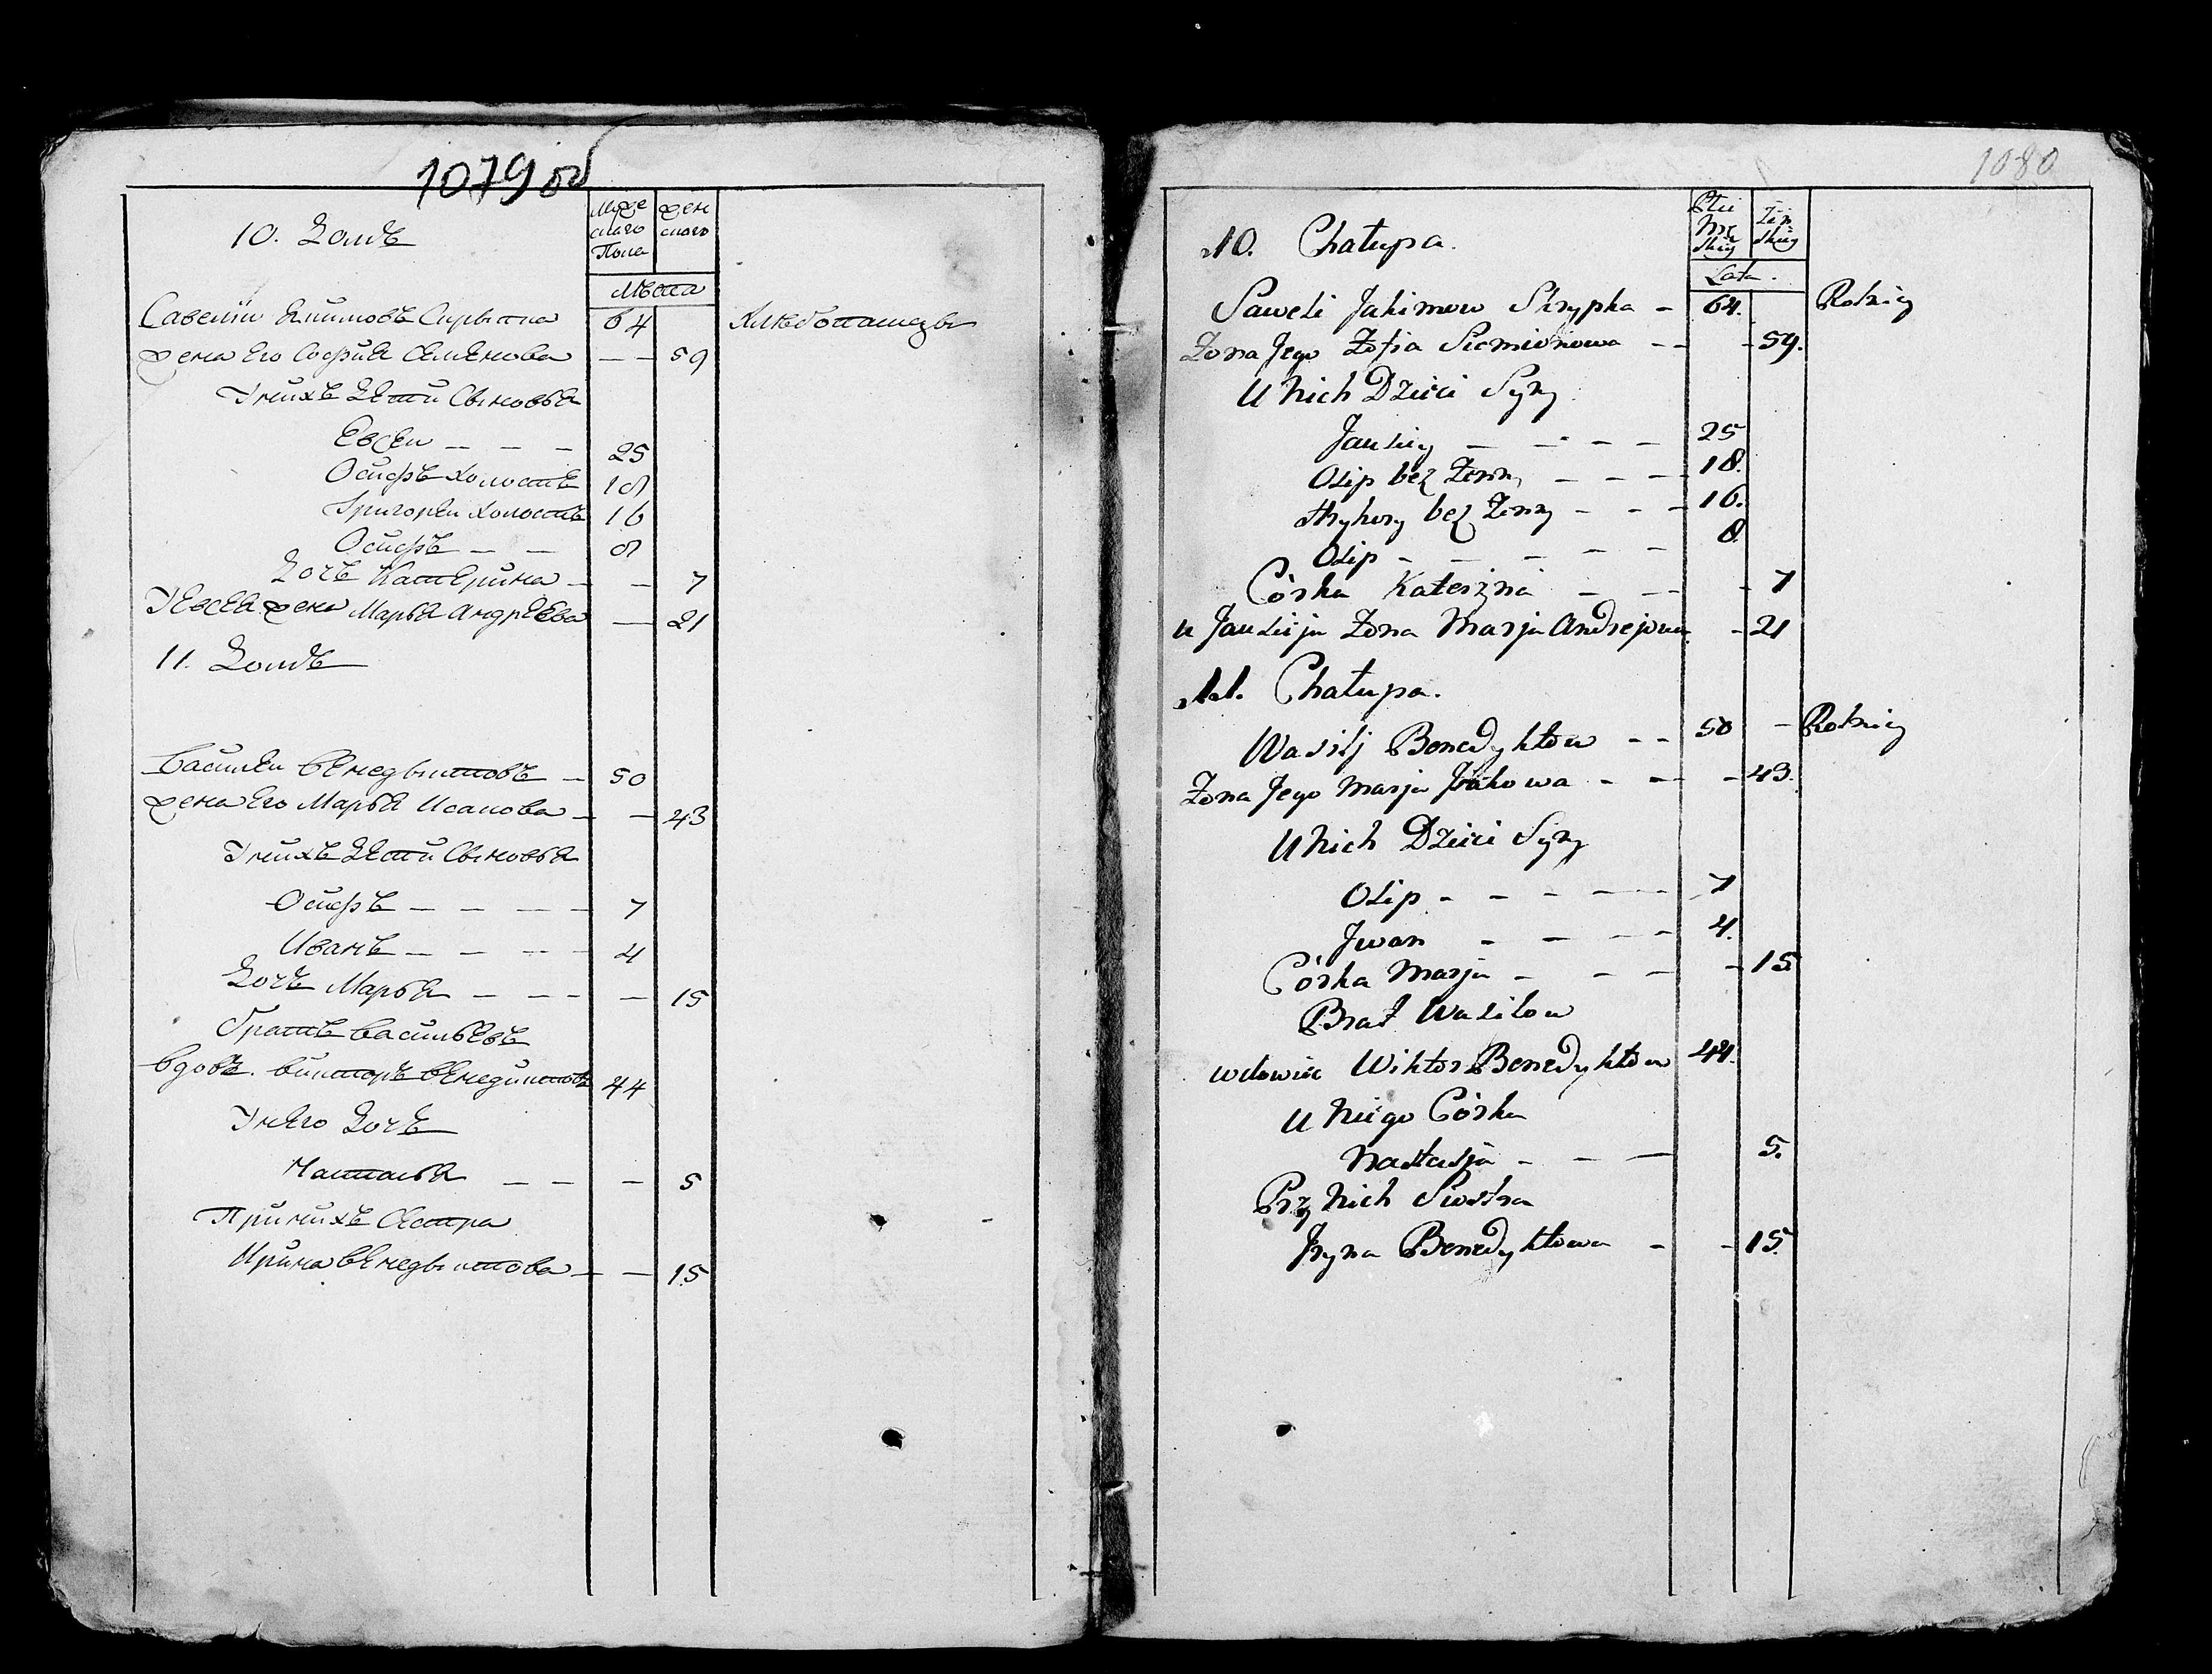 1079 об
10. Домъ
Муже
скаго
Пола
жен
скаго
Лѣта
Савелiй Якимовъ Скрыпка 64 Хлебопашецъ
жена Его София Семенова — — 59
У нихъ Дети Сыновья
Евсей — — — 25
Осифъ холостъ 18
Григорей холостъ 16
Осифъ — — 8
Дочь Катерина — — 7
У Евсея жена Марья Андреева — 21
11. Домъ
Василей Бенедыктовъ — 50
жена Его Марья Исакова — — 43
У нихъ Дети Сыновья
Осифъ — — — — 7
Иванъ — — — — 4
Дочь Марья — — — — 15
Братъ Васильевъ
Вдовъ. Викторъ Бенедиктовъ 44
У него Дочь
Настасья — — — 5
При нихъ Сестра
Ирина Бенедыктова — — 15
1080
10. Chałupa.
Płci
Mę
skiey
Żeń
skiey
Lata.
Saweli Jakimow Skrypka — 64. Rolniy
Żona Jego Zofia Siemionowa — — — 59.
U Nich Dzieci Syny
Jausiey — — — — 25
Osip bez Żony — — — 18.
Hryhory bez Żony — — — 16.
Osip — — — — — 8.
Córka Katerżyna — — — — 7
u Jausieja Żona Marja Andrejowa — 21
11. Chałupa.
Wasilj Benedyktow — — 50 — Rolniy
Żona Jego Marja Isakowa — — — 43.
U Nich Dzieci Syny
Osip — — — — — 7
Jwan — — — — 4.
Córka Marja — — — — 15
Brat Wasilow
wdowiec Wiktor Benedyktow 44.
U Niego Córka
Nastasja — — — 5.
Przy Nich Siostra
Jryna Benedyktowa — — 15